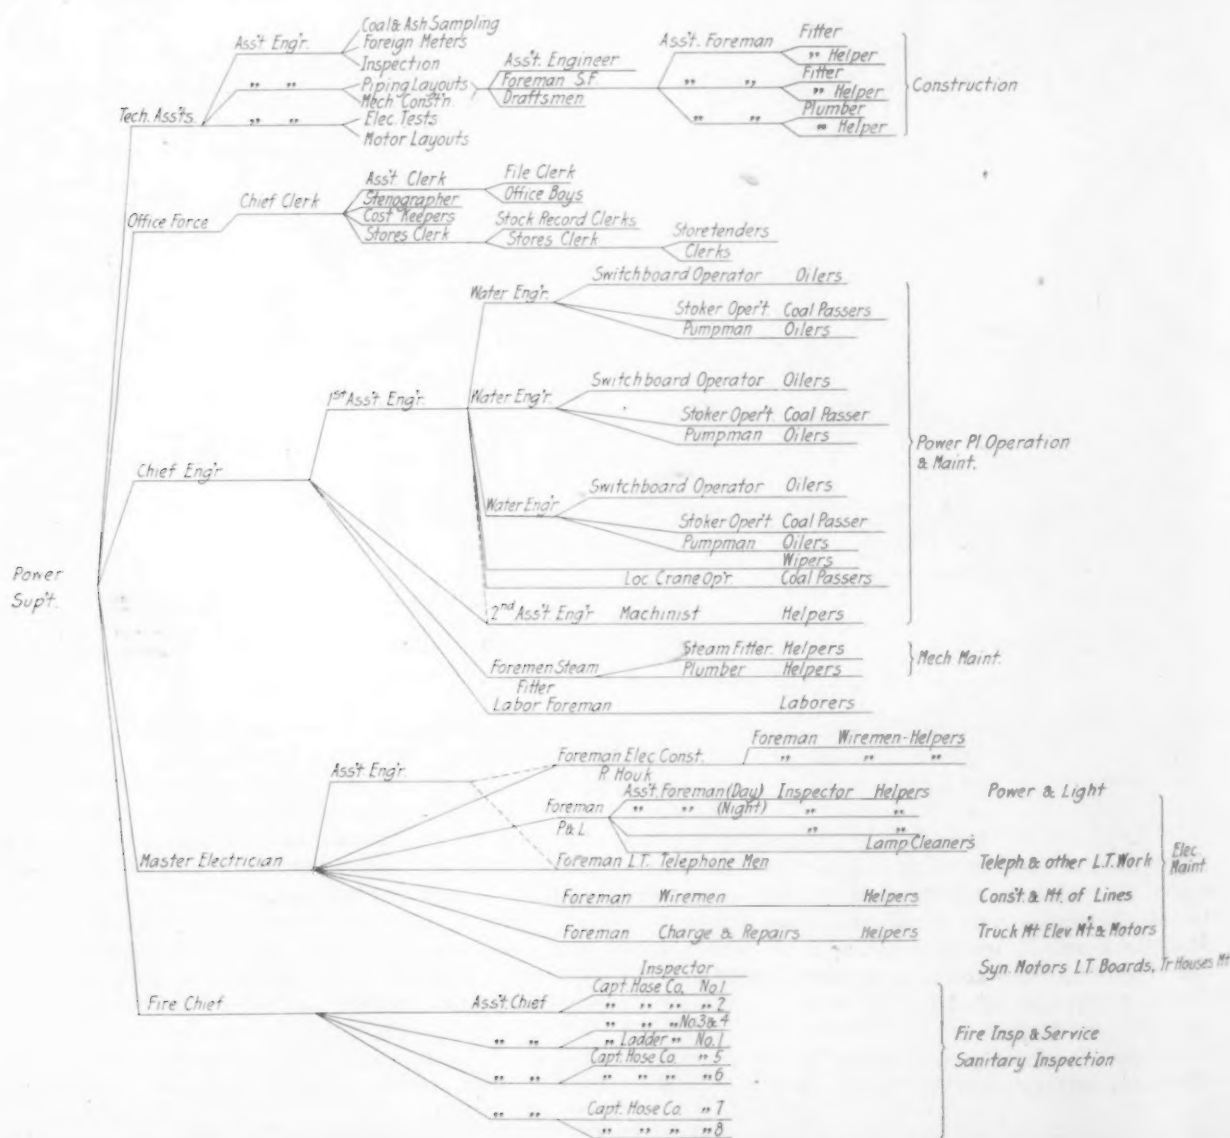 Power
Sup't.
Tech. Ass'ts.
Ass't Eng'r.
" "
" "
Coal & Ash Sampling
Foreign Meters
Inspection
Piping Layouts
Mech. Const'n
Elec. Tests
Motor Layouts
Ass't. Engineer
Foreman S.F.
Draftsmen
Ass't. Foreman
" "
" "
Fitter
" Helper
Fitter
" Helper
Plumber
" Helper
Construction
Office Force
Chief Clerk
Ass't Clerk
Stenographer
Cost Keepers
Stores Clerk
File Clerk
Office Boys
Stock Record Clerks
Stores Clerk
Storetenders
Clerks
Chief Eng'r
1st Ass't Eng'r.
Water Eng'r.
Switchboard Operator Oilers
Stoker Oper't. Coal Passers
Pumpman Oilers
Water Eng'r.
Switchboard Operator Oilers
Stoker Oper't. Coal Passer
Pumpman Oilers
Water Eng'r
Switchboard Operator Oilers
Stoker Oper't. Coal Passer
Pumpman Oilers
Wipers
Loc Crane Op'r. Coal Passers
2nd Ass't. Eng'r Machinist Helpers
Power Pl Operation
& Maint.
Foremen Steam
Fitter
Steam Fitter. Helpers
Plumber Helpers
Mech Maint.
Labor Foreman Laborers
Master Electrician
Ass't Eng'r.
Foreman Elec Const.
R Houk
Foreman Wiremen-Helpers
" " "
Foreman
P & L
Ass't. Foreman (Day) Inspector Helpers
" " (Night) " "
" "
Lamp Cleaners
Power & Light
Foreman L.T. Telephone Men
Teleph & other L.T. Work
Foreman Wiremen Helpers
Cons't. & Mt. of Lines
Foreman Charge & Repairs Helpers
Truck Mt Elev Mt. & Motors
Inspector
Syn. Motors L.T. Boards, Tr Houses Mt
Elec.
Maint.
Fire Chief
Ass't. Chief
Capt. Hose Co. No.1
" " " " 2
" "
" " " No.3 & 4
" Ladder " No.1
" "
Capt. Hose Co. " 5
" " " " 6
" "
Capt. Hose Co. " 7
" " " " 8
Fire Insp & Service
Sanitary Inspection